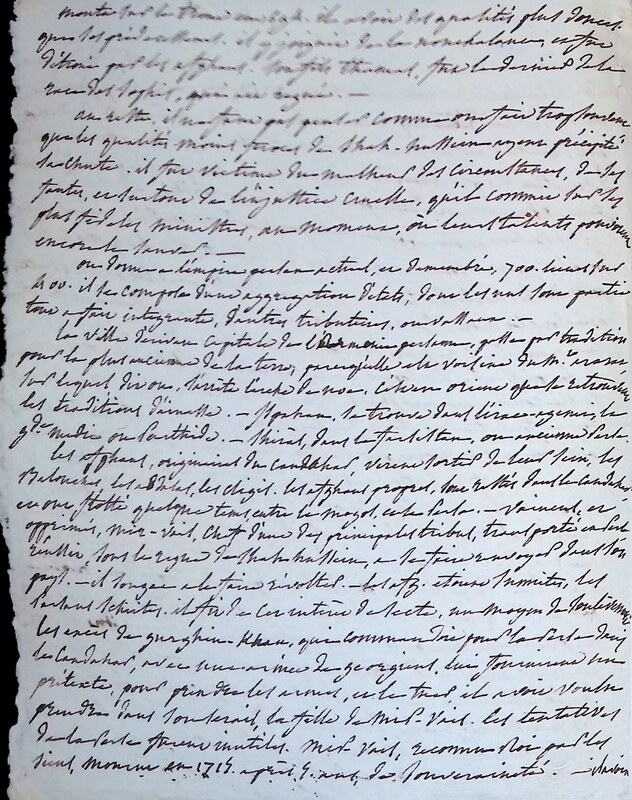 monta sur le trone en 1694. il avoit des qualités plus douces
que ses prédécesseurs. il y joignoit de la nonchalance, et fut
détroné par les afghans. son fils thamas, fut le dernier de la
race des sophis, qui ait regné. —
au reste, il ne faut pas penser comme on fait trop souvent
que les qualités moins feroces de Shah-hussein ayent précipité
sa chute. il fut victime du malheur des circonstances, de ses
fautes, et surtout de l'injustice cruelle, qu'il commit sur ses
plus fideles ministres, au moment, où leurs talents pouvoient
encore le sauver. —
on donne a l'empire persan actuel, et demembré, 700. lieues sur
400. il se compose d'une aggregation d'états, dont les uns font partie
tout a fait integrente, d'autres tributaires, ou vassaux. —
la ville d'erivan capitale de l'Armenie persanne, passe par tradition
pour la plus ancienne de la terre, parcequ'elle est voisine du M.t ararat
sur lequel dit on, s'arrêta l'arche de noé. c'est en orient que se retrouvent
les traditions d'irnelle. — Ispahan, se trouve dans l'irac-agemi, la
g.de medie ou Parthide. — Shiras, dans le farsistan, ou ancienne Perse.
les afghans, originaires du Candahar, virent sortir de leur sein, les
Balouches, les abdalis, les clegis. les afghans propres, sont restés dans le Candahar
et ont flotté quelque tems entre le mogol, et la Perse. — vaincus, et
opprimés, mir-vais, chef d'une des principales tribus, transporté en Perse
réussit, sous le regne de Shah-hussein, a se faire envoyer dans son
pays. — il songea a le faire révolter. — les afg. etoient sunnites, les
persans schiites. il fit de cet interet de secte, un moyen de soulevement
les excès de gurghin-khan, qui commandoit pour la Perse dans
le Candahar, avec une armée de georgiens, lui fournirent un
prétexte, pour prendre les armes, et le tuer il avoit voulu
prendre dans son serail, la fille de Mir-Vais. les tentatives
de la Perse furent inutiles. Mir Vais, reconnu Roi par les
siens, mourut en 1715. après 9. ans, de souveraineté. —